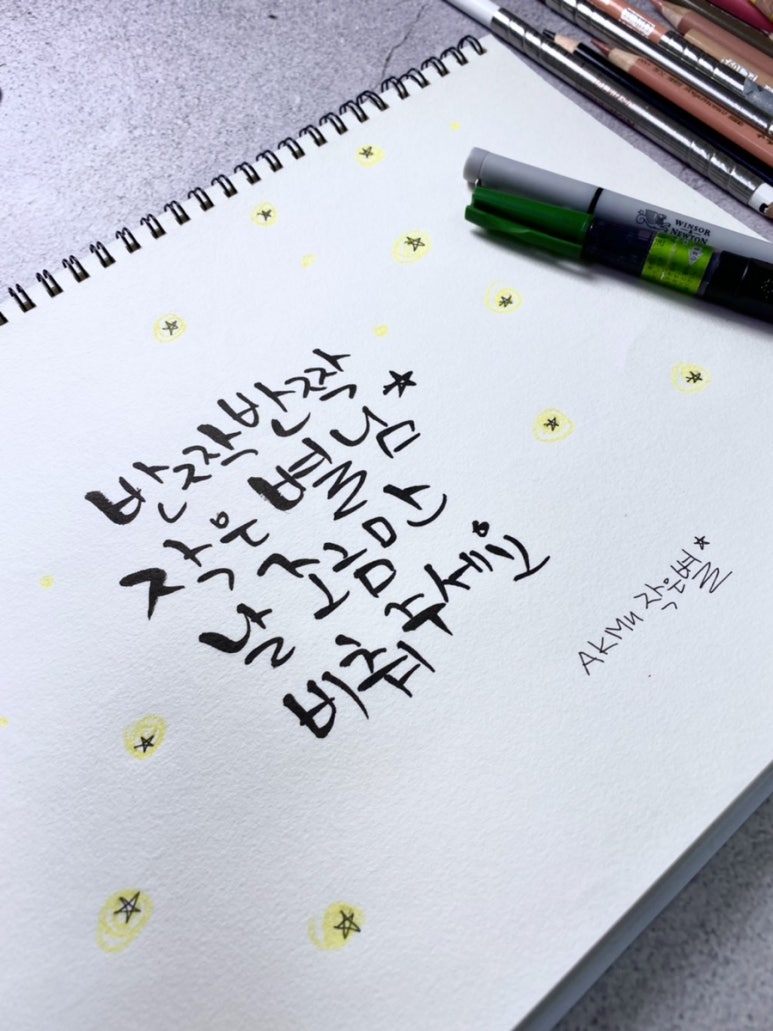 반짝반짝
작은 별님
날 조금만
비춰주세요
AKMU 작은별
WINSOR
NEWTON